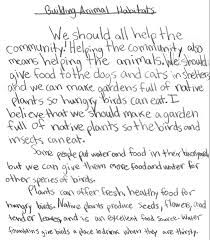 Building Animal Habitats
We should all help the
community. Helping the community also
means helping the animals. We should
give food to the dogs and cats in shelters
and we can make gardens full of native
plants so hungry birds can eat. I
believe that we should make a garden
full of native plants so the birds and
insects can eat.
Some people put water and food in their backyards
but we can give them more food and water for
other species of birds.
Plants can offer fresh, healthy food for
hungry birds. Native plants produce seeds, flowers, and
tender leaves, and is an excellent food source. Water
fountains give birds a place to drink when they are thirsty.